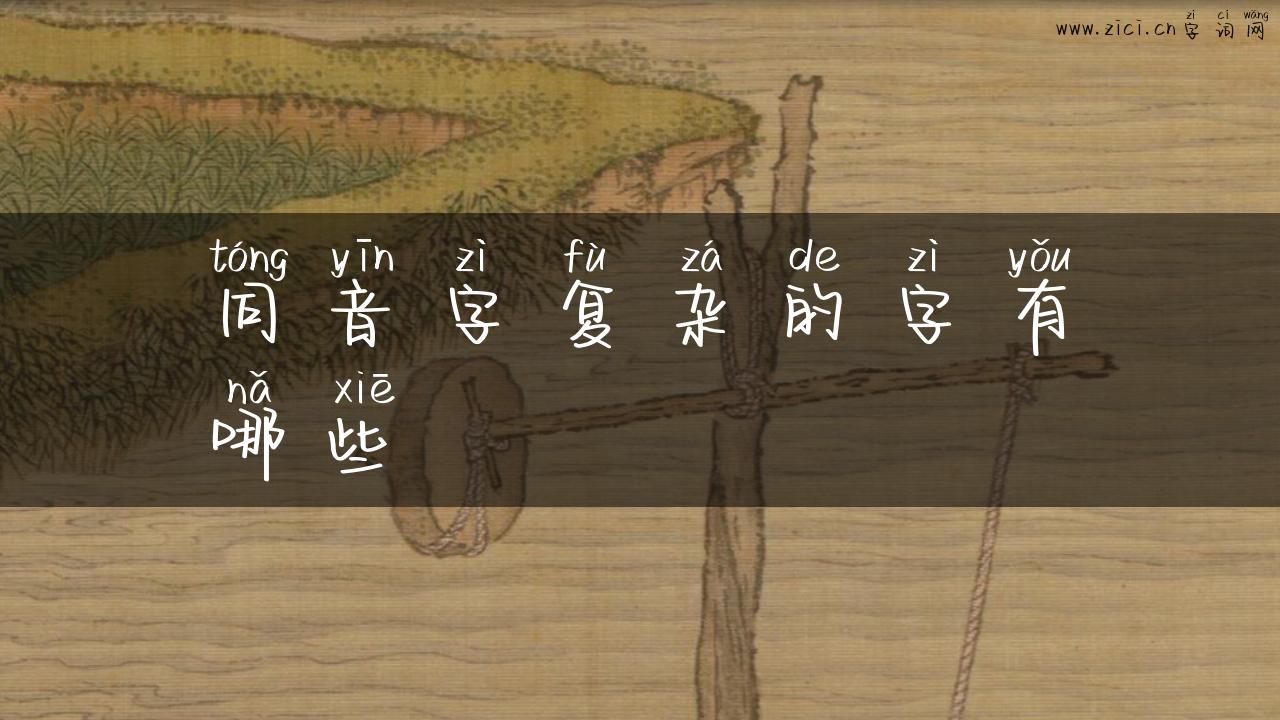 zì cí wǎng
www.zici.cn 字 词 网
tóng yīn zì fù zá de zì yǒu
同 音 字 复 杂 的 字 有
nǎ xiē
哪 些